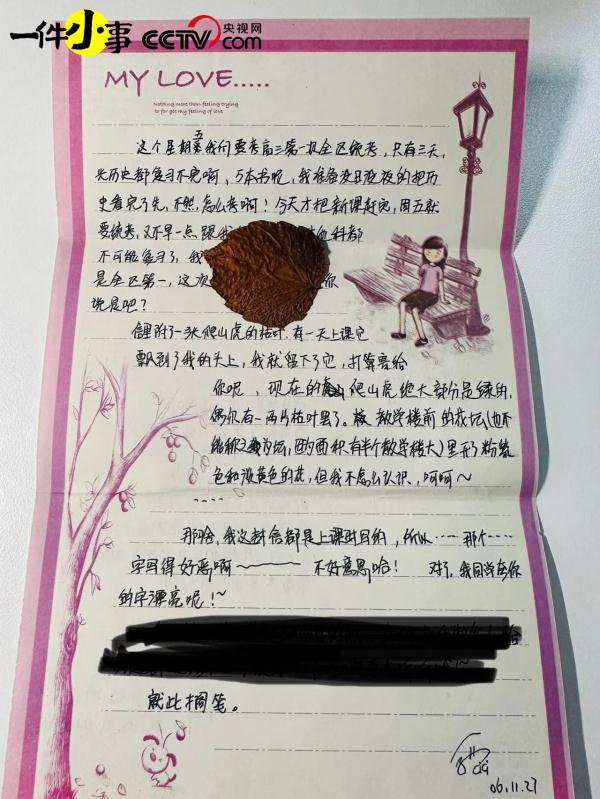 一件小事 CCTV.com 央视网
MY LOVE.....
Nothing more then feeling trying
to for get my feeling of love
这个星期五我们要考高三第一次全区统考，只有三天，
光历史都复习不完啊，5本书呢，我准备没日没夜的把历
史看完了先，不然，怎么考啊！今天才把新课赶完，周五就
要统考，又不早一点跟我
科都
不可能复习了，我
是全区第一，这次
你
说是吧？
信里附了一张爬山虎的枯叶，有一天上课它
飘到了我的头上，我就留下了它，打算寄给
你呢，现在的爬山虎绝大部分是绿的，
偶尔有一两片枯叶罢了。教学楼前的花坛(也不
能称之为坛，因为面积有半个教学楼大)里开了粉紫
色和淡黄色的花，但我不怎么认识，呵呵~
....
那哈，我这封信都是上课时写的，所以……那个……
字写得好恶啊~ 不好意思哈！对了，我同学在夸你
的字漂亮呢！~
就此搁笔。
06.11.27